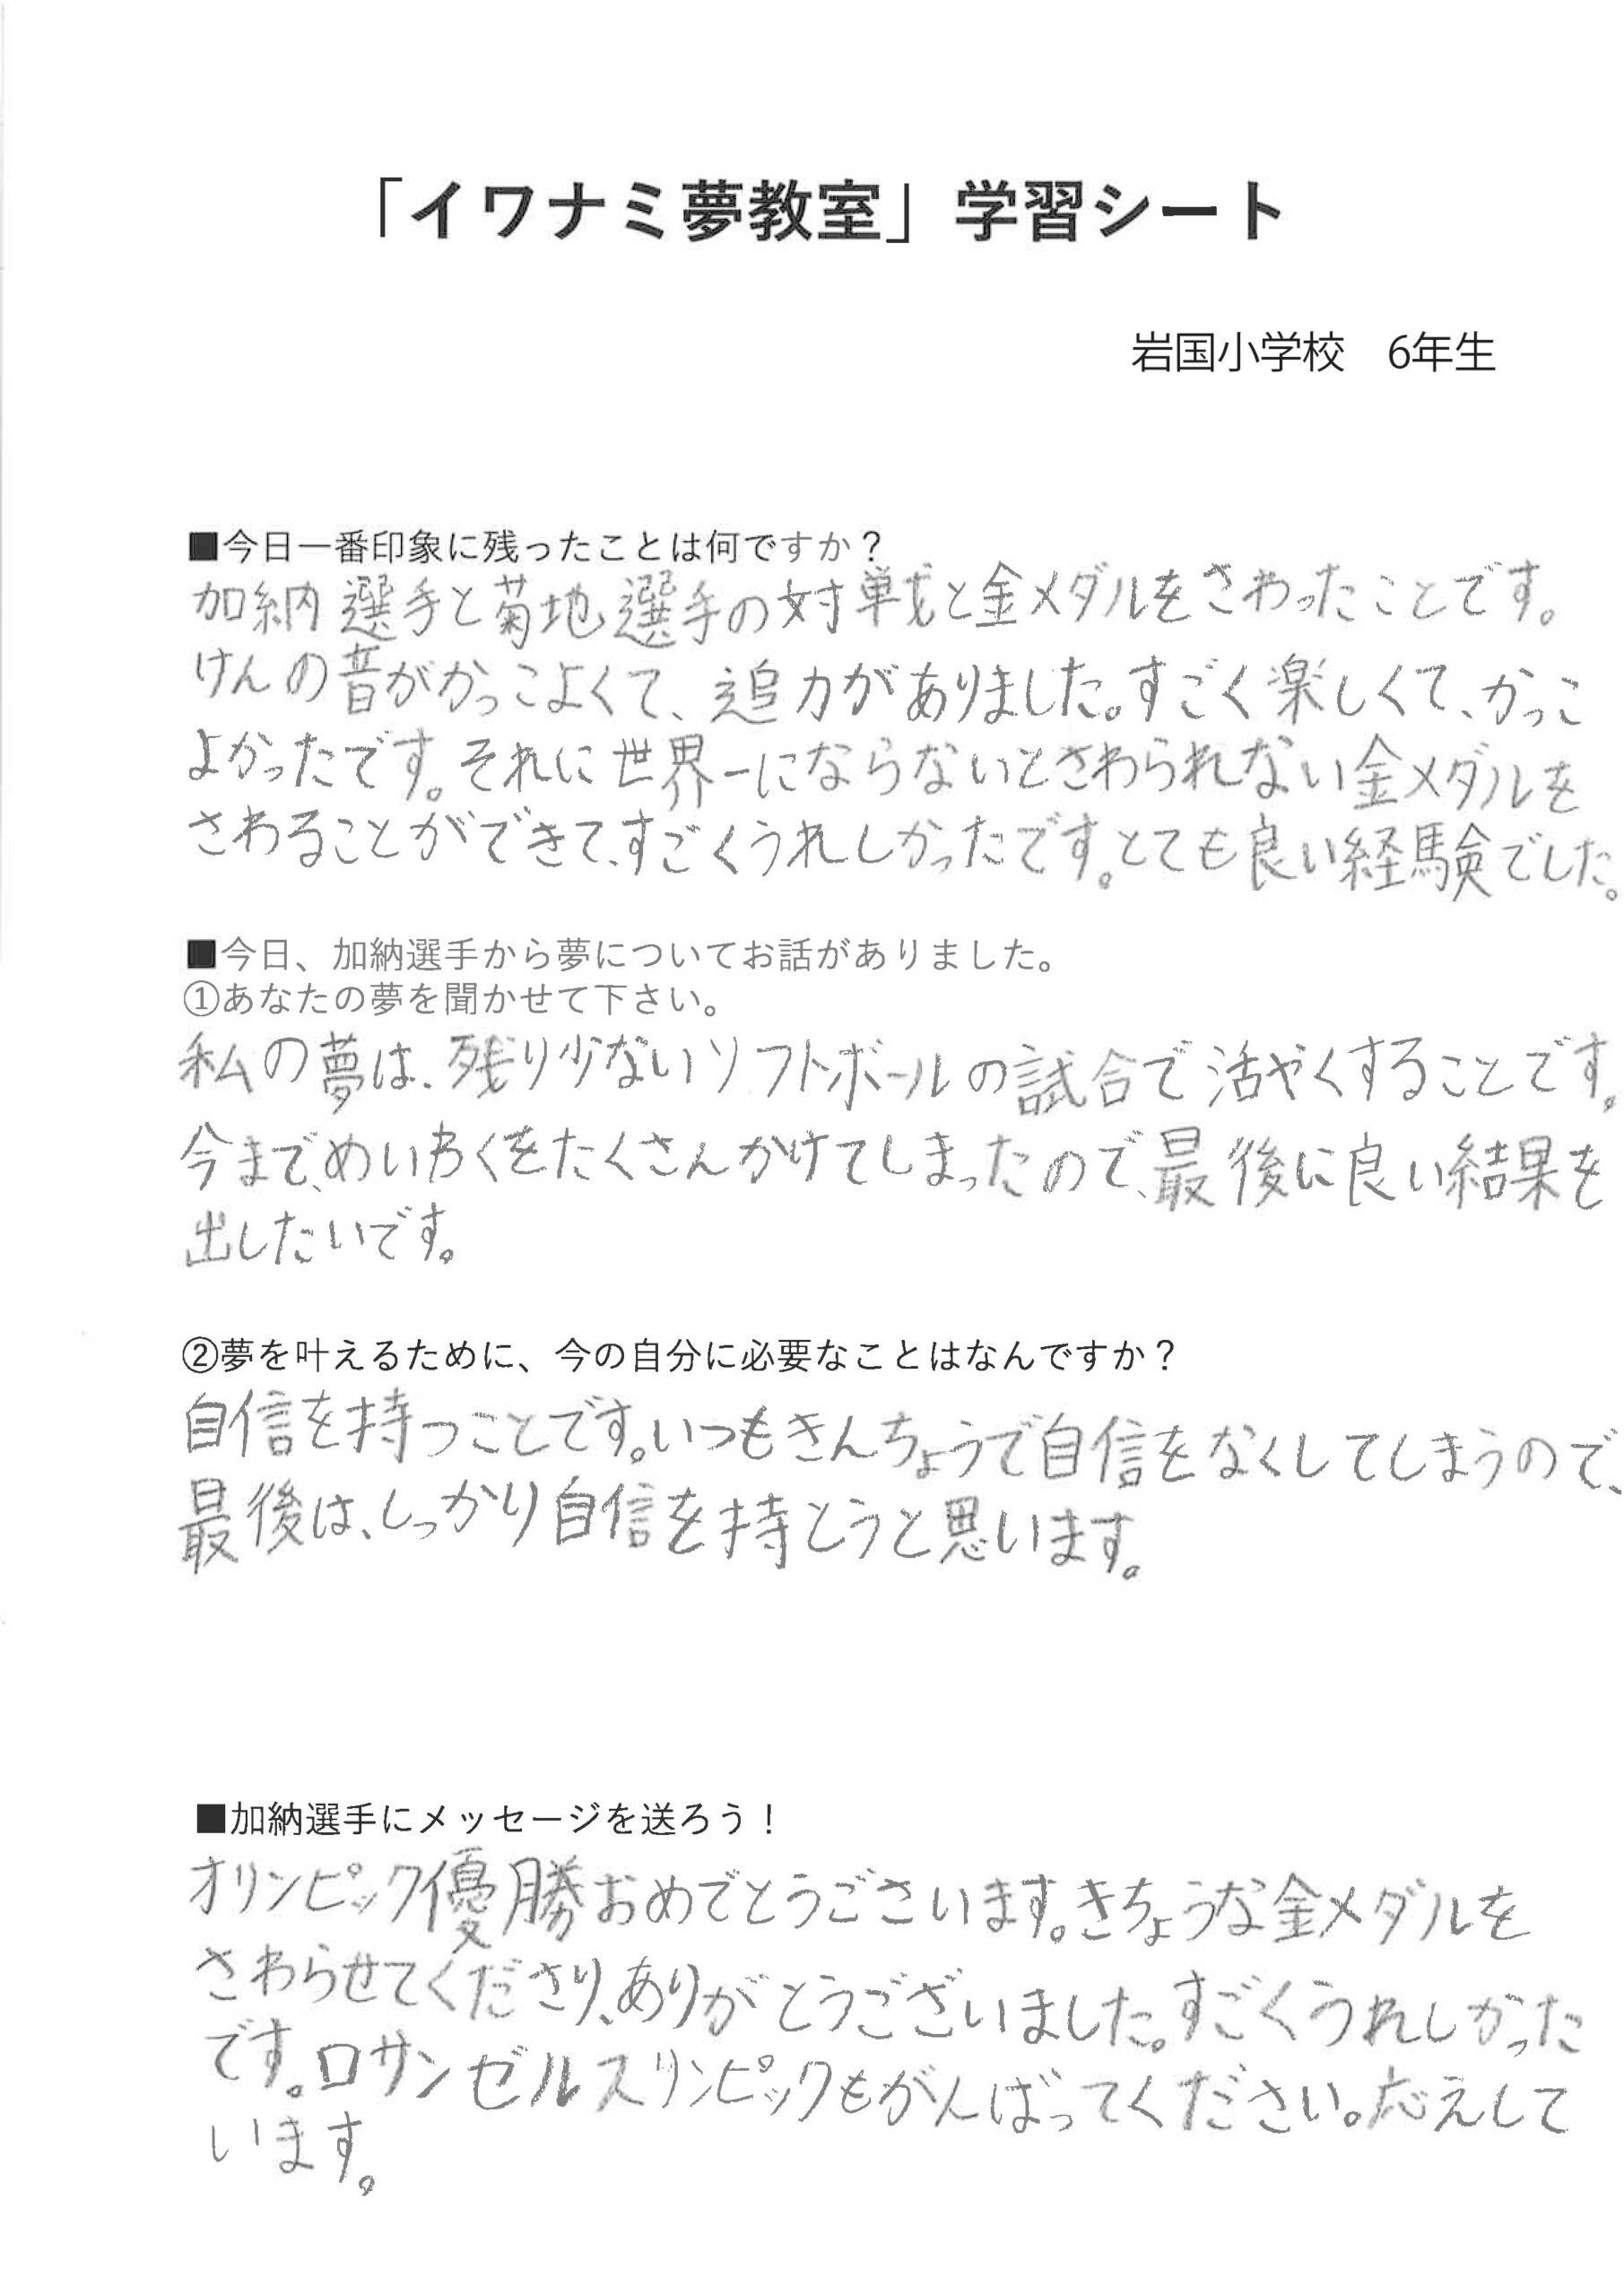 「イワナミ夢教室」学習シート
岩国小学校　6年生
■今日一番印象に残ったことは何ですか？
加納選手と菊地選手の対戦と金メダルをさわったことです。
けんの音がかっこよくて、追力がありました。すごく楽しくて、かっこ
よかったです。それに世界一にならないとさわられない金メダルを
さわることができて、すごくうれしかったです。とても良い経験でした。
■今日、加納選手から夢についてお話がありました。
①あなたの夢を聞かせて下さい。
私の夢は、残り少ないソフトボールの試合で活やくすることです。
今まで、めいわくをたくさんかけてしまったので、最後に良い結果を
出したいです。
②夢を叶えるために、今の自分に必要なことはなんですか？
自信を持つことです。いつもきんちょうで自信をなくしてしまうので、
最後は、しっかり自信を持とうと思います。
■加納選手にメッセージを送ろう！
オリンピック優勝おめでとうごさいます。きちょうな金メダルを
さわらせてくださり、ありがとうございました。すごくうれしかった
です。ロサンゼルスリンピックもがんばってください。応えして
います。